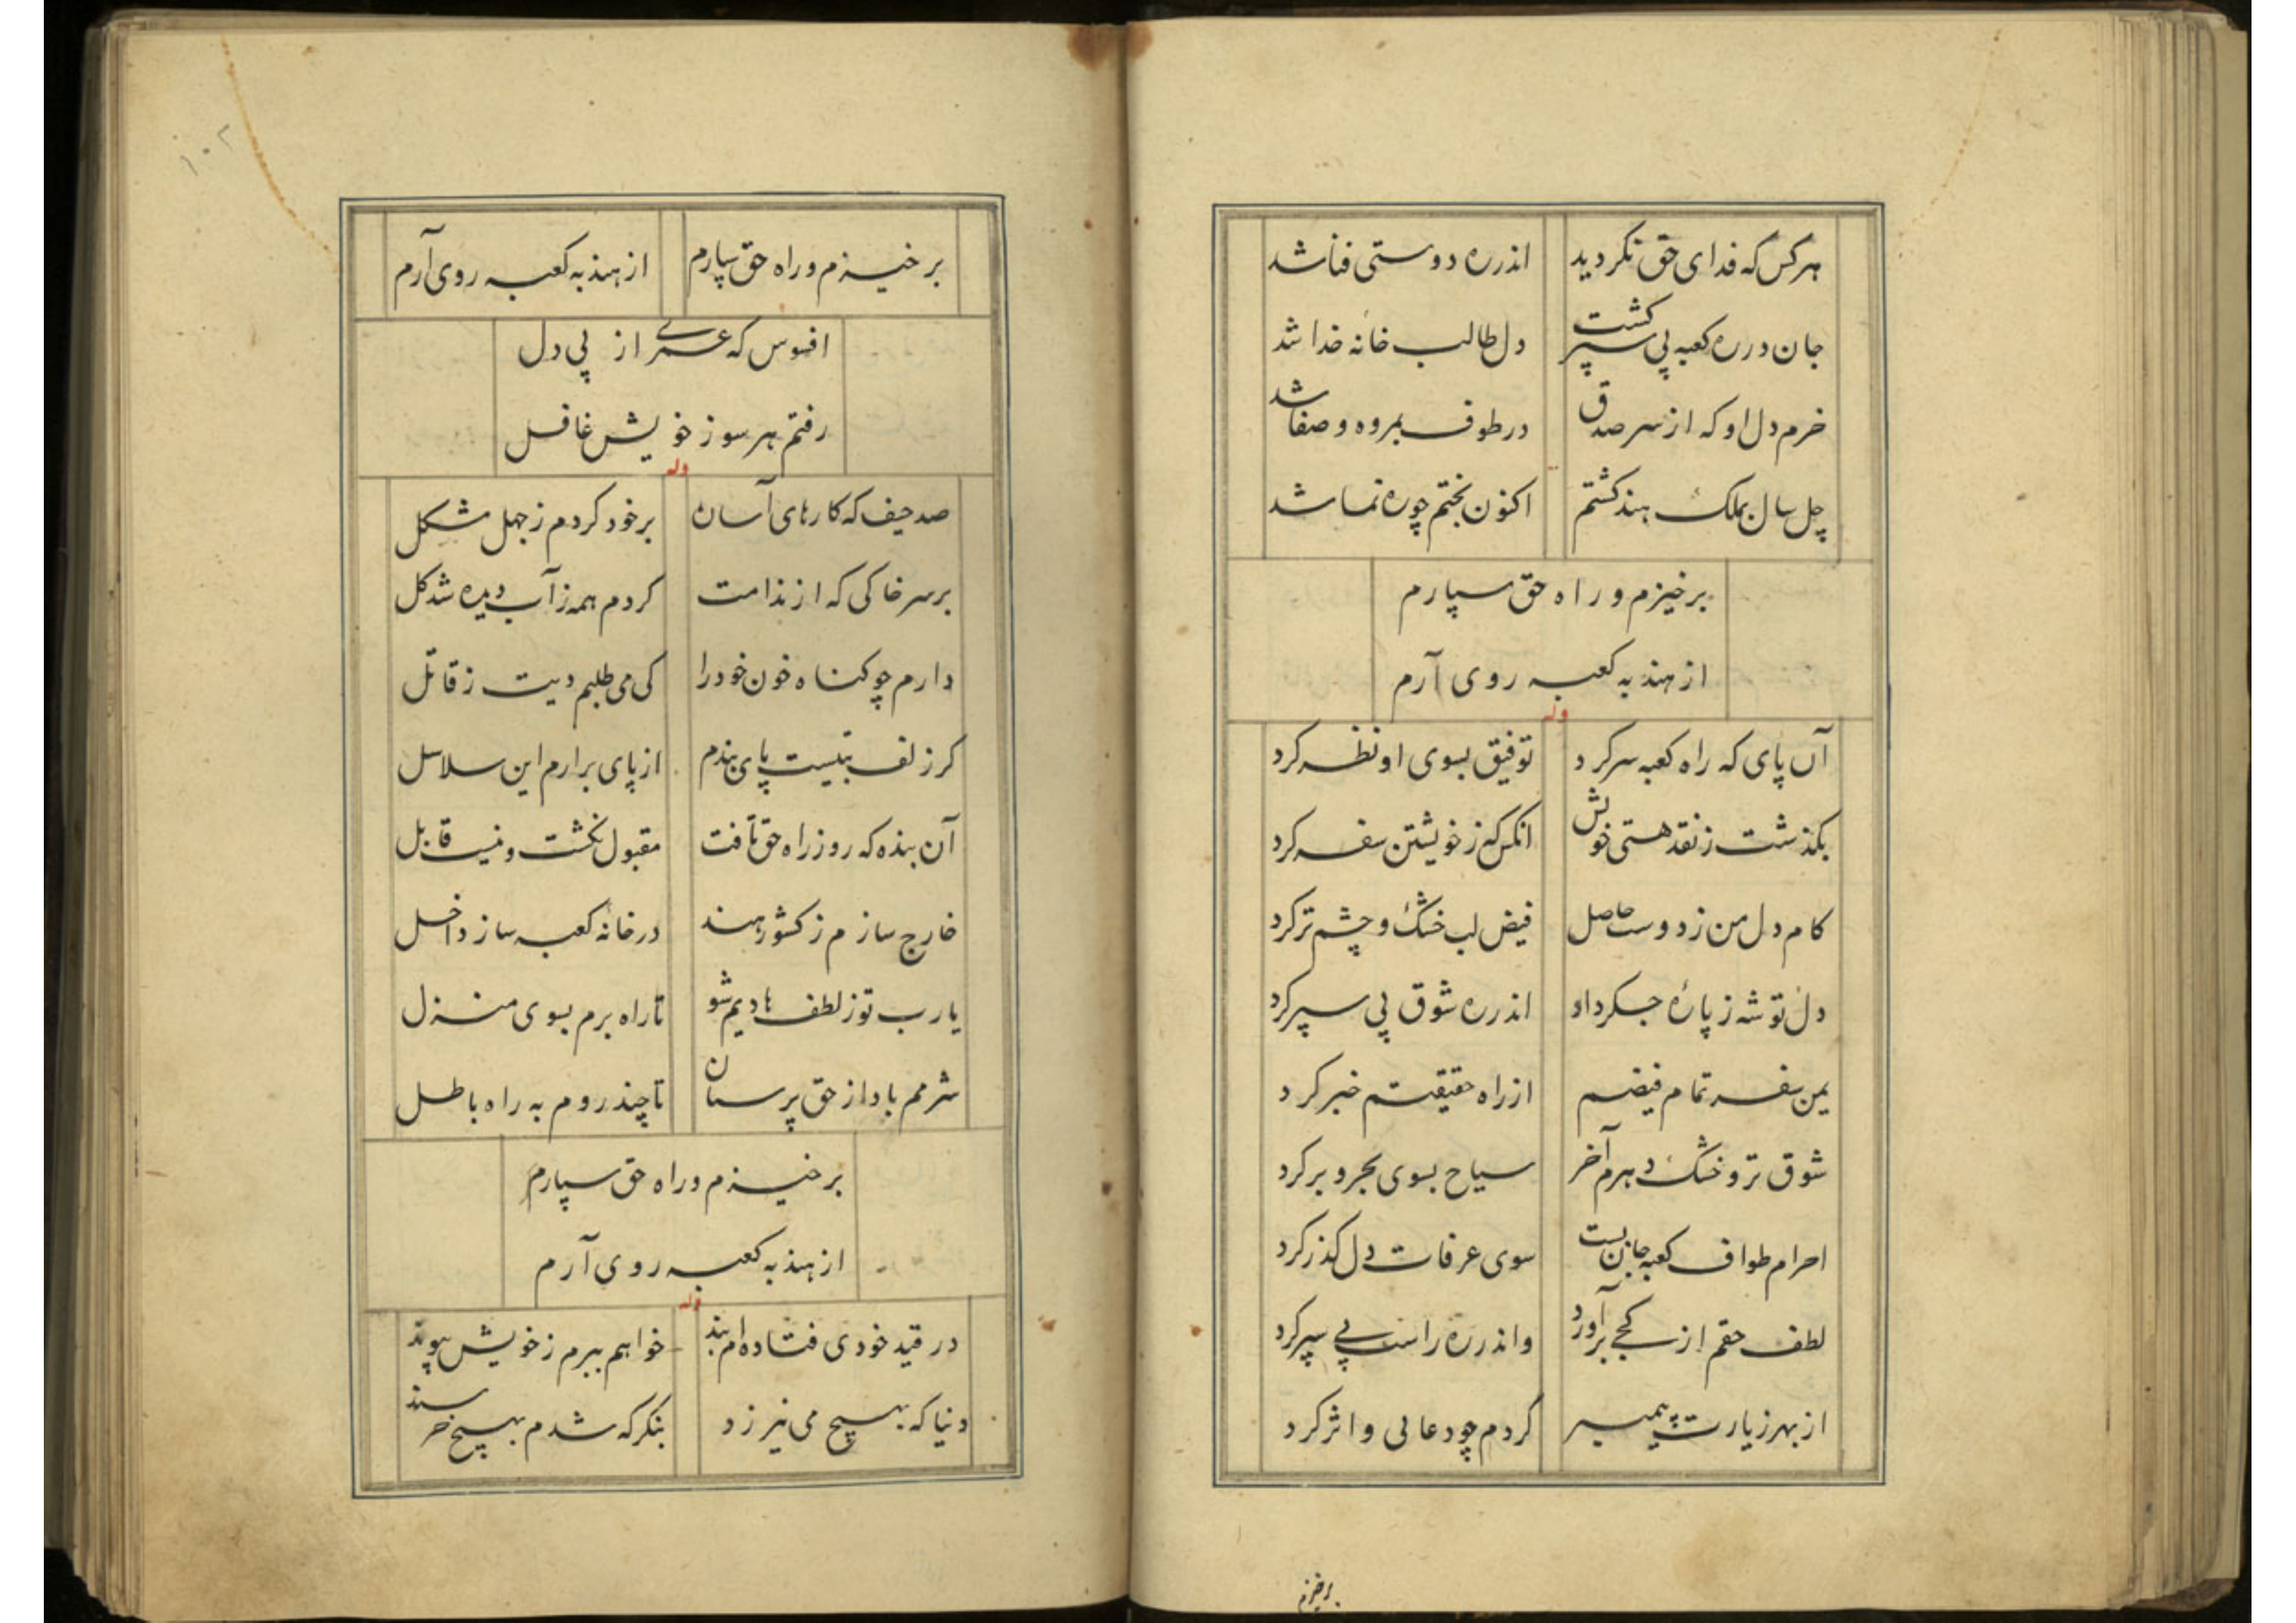 هرکس که فدای حق نکردید اندره دوستی فنا شد
جان در ره کعبه پی سپر کشت دل طالب خانه خدا شد
خرم دل او که از سر صدق در طوف بمروه و صفا شد
چل سال بملک هند کشتم اکنون بختم چو ره نما شد
برخیزم و راه حق سپارم
از هند به کعبه روی آرم
وله
آن پای که راه کعبه سر کرد توفیق بسوی او نظر کرد
بکذشت ز نقد هستی خویش انکس که ز خویشتن سفر کرد
کام دل من ز دوست حاصل فیض لب خشک و چشم تر کرد
دل توشه ز پارهٔ جکر داد اندره شوق پی سپر کرد
یمن سفر تمام فیضم از راه حقیقتم خبر کرد
شوق تر و خشک دهرم آخر سیاح بسوی بحر و بر کرد
احرام طواف کعبه جان بست سوی عرفات دل کذر کرد
لطف حقم از کجی برآورد واندره راست پی سپر کرد
از بهر زیارت پیمبر کردم چو دعایی و اثر کرد
برخیزم
۱۰۲
برخیزم و راه حق سپارم از هند به کعبه روی آرم
افسوس که عمری از پی دل
رفتم هر سو ز خویش غافل
وله
صد حیف که کارهای آسان بر خود کردم ز جهل مشکل
بر سر خاکی که از ندامت کردم همه ز آب دیده شد کل
دارم چو کناه خون خود را کی می طلبم دیت ز قاتل
کر زلف بتیست پای بندم از پای برارم این سلاسل
آن بنده که رو ز راه حق تافت مقبول نکشت و نیست قابل
خارج سازم ز کشور هند در خانه کعبه ساز داخل
یا رب تو ز لطف هادیم شو تا راه برم بسوی منزل
شرمم باد از حق پرستان تا چند روم به راه باطل
برخیزم و راه حق سپارم
از هند به کعبه روی آرم
وله
در قید خودی فتاده ام بند خواهم ببرم ز خویش پیوند
دنیا که بهیچ می نیرزد بنکر که شدم بهیچ خرسند